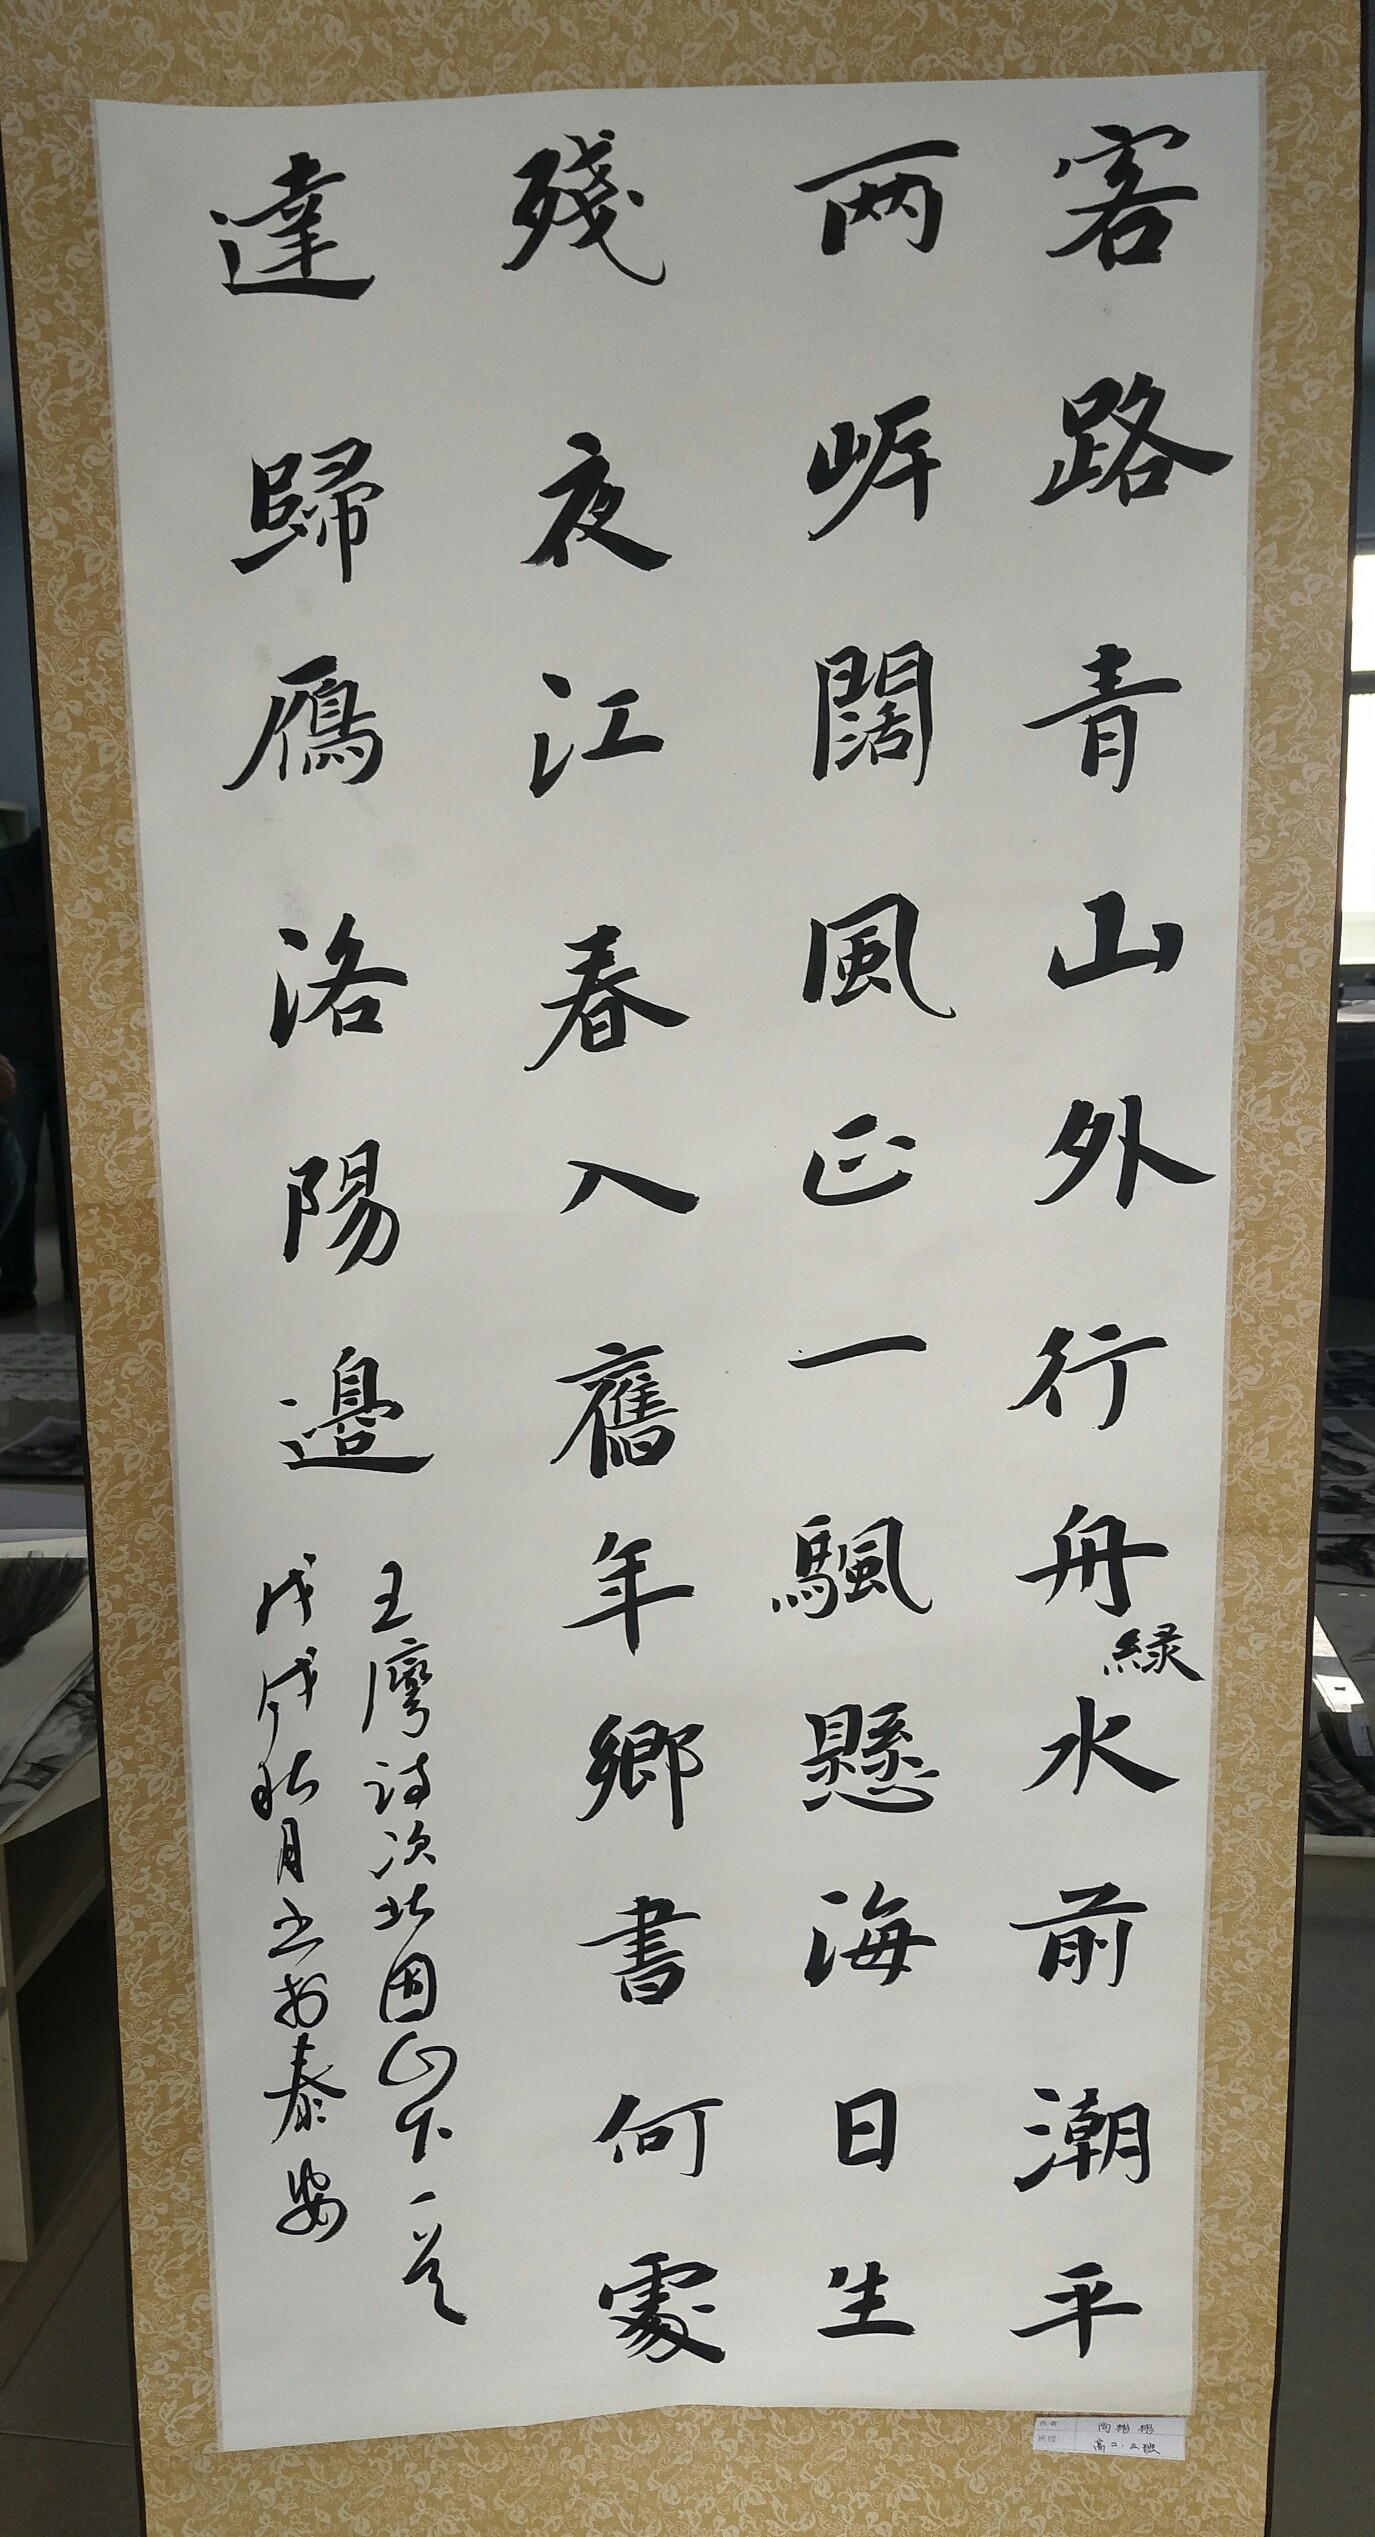 客路青山外行舟綠水前潮平
两岍闊風正一颿懸海日生
殘夜江春入舊年鄉書何處
達歸鴈洛陽邊
王灣诗次北固山下一首
戊戌秋月书於泰安
作者 尚
班级 高二.五班